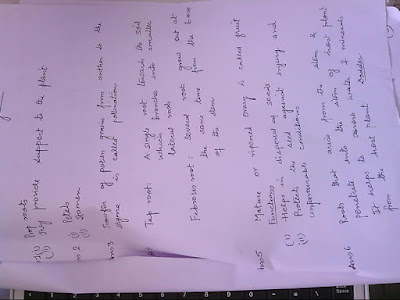 Prop roots
(i) They provide support to the plant
ans 2 (i) Petals
(ii) Stamen
ans 3 Transfer of pollen grains from anther to the
stigma is called pollination
Tap root: A single root towards the soil
which branches into smaller
lateral roots
Fibrous root: Several root grow out at
the same time from the base
of the stem
ans 5 Mature or ripened ovary is called fruit
Functions
(i) Helps in dispersal of seeds
(ii) Protects the seed against injury and
unfavourable conditions
ans 6 Roots that arise from the stem &
penetrate into the stem of host plant
It helps to absorb water & minerals
from the host plant